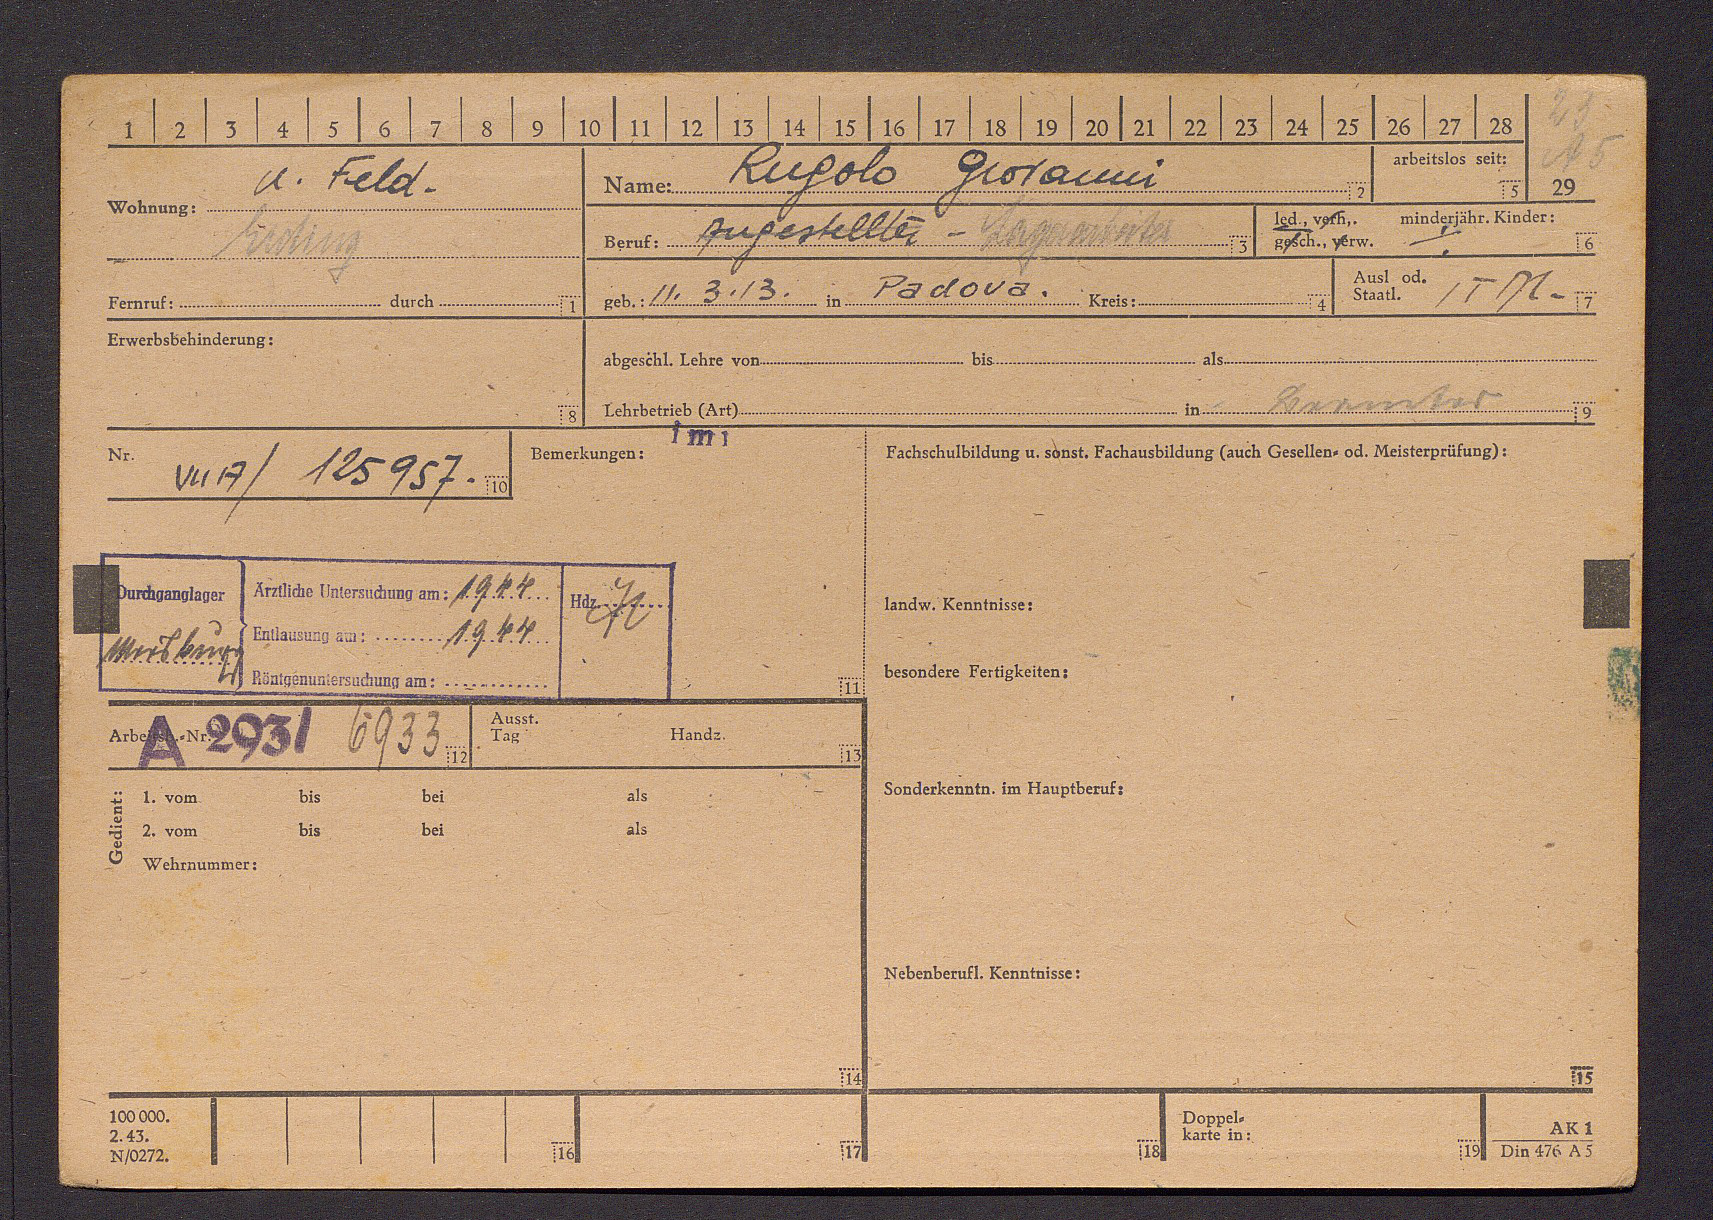 1 2 3 4 5 6 7 8 9 10 11 12 13 14 15 16 17 18 19 20 21 22 23 24 25 26 27 28
23
A5
29
Wohnung: u. Feld.
Erding
Fernruf: durch 1
Name: Rugolo Giovanni 2
arbeitslos seit: 5
Beruf: Angestellter - Lagerarbeiter 3
led., verh.,
gesch., verw.
minderjähr. Kinder:
6
geb.: 11. 3. 13. in Padova. Kreis: 4
Ausl od.
Staatl. 7
Erwerbsbehinderung:
8
abgeschl. Lehre von bis als
Lehrbetrieb (Art) in 9
Nr. VII A/ 125957. 10
Bemerkungen:
imi
Fachschulbildung u. sonst. Fachausbildung (auch Gesellen- od. Meisterprüfung):
Durchganglager
Ärztliche Untersuchung am: 1944
Entlausung am: 1944
Röntgenuntersuchung am:
Hdz.
11
landw. Kenntnisse:
besondere Fertigkeiten:
Arbeitsb.-Nr. A 293/ 6933 12
Ausst.
Tag
Handz.
13
Gedient:
1. vom bis bei als
2. vom bis bei als
Wehrnummer:
14
Sonderkenntn. im Hauptberuf:
Nebenberufl. Kenntnisse:
15
100 000.
2. 43.
N/0272.
16
17
18
Doppel-
karte in:
19
AK 1
Din 476 A 5